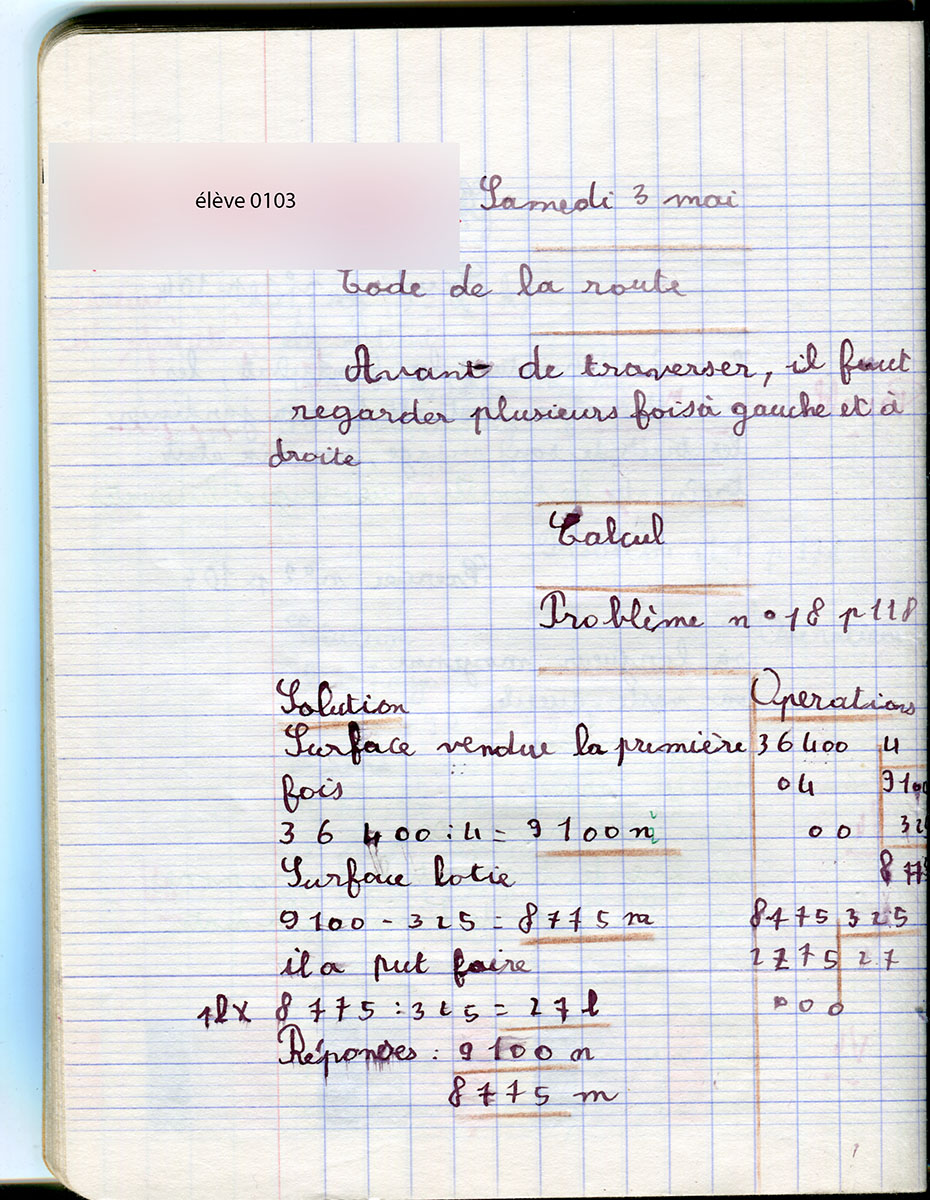 élève 0103
Samedi 3 mai
Code de la route
Avant de traverser, il faut
regarder plusieurs fois à gauche et à
droite
Calcul
Problème n° 18 p 118
Solution
Operations
Surface vendue la première
36400 4
fois
04 9100
36 400 : 4 = 9 100 m
00 32
Surface lotie
877
9100 - 325 = 8775 m
8775 325
il a put faire
2275 27
1l x 8775 : 325 = 27 l
000
Réponses : 9100 m
8775 m